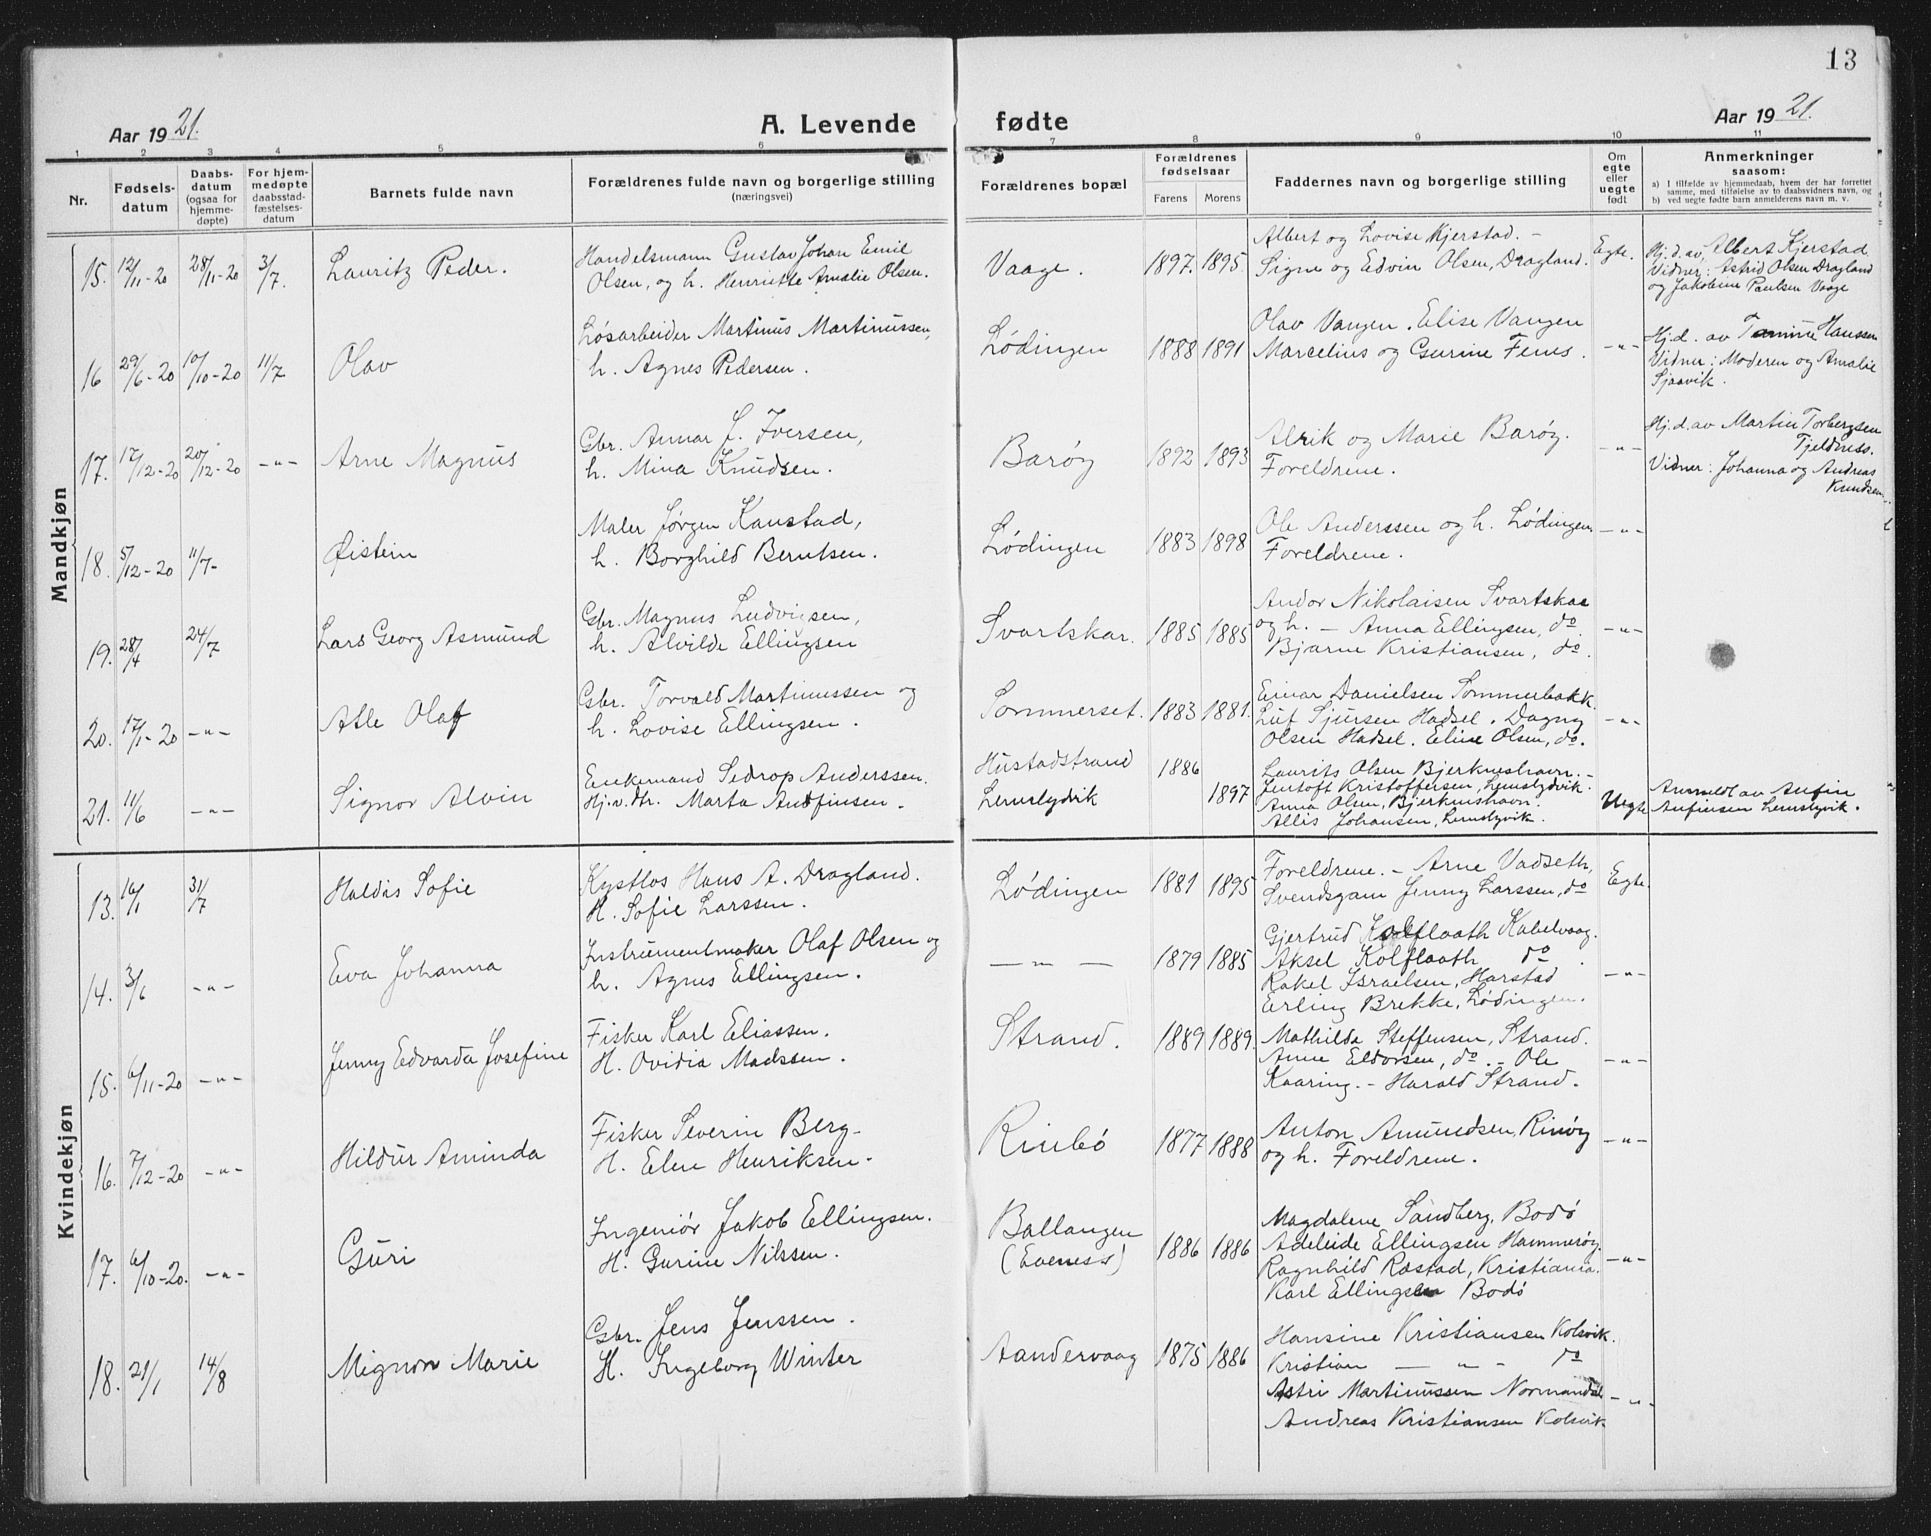 13
Aar 1921. A. Levende fødte Aar 1921.
1 2 3 4 5 6 7 8 9 10 11
Nr.
Fødsels-
datum
Daabs-
datum
(ogsaa for
hjemme-
døpte)
For hjem-
medøpte
daabsstad-
fæstelses-
datum
Barnets fulde navn
Forældrenes fulde navn og borgerlige stilling
(næringsvei)
Forældrenes bopæl
Forældrenes
fødselsaar
Farens Morens
Faddernes navn og borgerlige stilling
Om
egte
eller
uegte
født
Anmerkninger
saasom:
a) I tilfælde av hjemmedaab, hvem der har forrettet
samme, med tilføielse av to daabsvidners navn, og
b) ved uegte fødte barn anmelderens navn m. v.
Mandkjøn
15. 12/11-20 28/11-20 3/7. Lauritz Peder.
Handelsmann Gustav Johan Emil
Olsen, og h. Henriette Amalie Olsen.
Vaage. 1897. 1895.
Albert og Lovise Kjerstad. -
Signe og Edvin Olsen, Dragland.
Egte.
Hj.d. av, Albert Kjerstad
Vidner: Astrid Olsen Dragland
og Jakobine Paulsen Vaage
16 29/6-20 10/10-20 11/7 Olav
Løsarbeider Martinus Martinussen,
h. Agnes Pedersen.
Lødingen 1888 1891
Olav Vangen. Elise Vangen
Marcelius og Gurine Fenes.
-"-
Hj.d. av Hanssen
Vidner: Moderen og Amalie
Sjaavik.
17. 17/12-20 20/12-20 -"- Arne Magnus
Gbr. Annar J. Iversen,
h. Mina Knudsen.
Barøy 1892 1893
Alrik og Marie Barøy.
Foreldrene.
-"-
Hj.d.av Martin Torbergsen
Tjeldness.
Vidner: Johanna og Andreas
Knudsen
18. 5/12-20 11/7- Øistein
Maler Jørgen Kanstad,
h. Borghild Berntsen.
Lødingen 1883 1898
Ole Anderssen og h. Lødingen
Foreldrene.
-"-
19. 28/4 24/7 Lars Georg Asmund
Gbr. Magnus Ludvigsen,
h. Alvilde Ellingsen
Svartskar. 1885 1885
Andor Nikolaisen Svartskar
og h. - Anna Ellingsen, do
Bjarne Kristiansen, do.
-"-
20. 17/1-20 -"- Atle Olaf
Gbr. Torvald Martinussen og
h. Lovise Ellingsen.
Sommerset. 1883 1881.
Einar Danielsen Sommerbakk.
Sjursen Hadsel. Dagny
Olsen Hadsel. Eline Olsen, do.
-"-
21. 11/6 -"- Signor Alvin
Enkemand Sedrop Anderssen.
Hj.v.dtr. Marta Andfinsen.
Hustadstrand 1886
Lemslydvik 1897
Laurits Olsen Bjerkneshavn. -
Jentoft Kristoffersen, Lemslydvik.
Anna Olsen, Bjerkneshavn.
Allis Johansen, Lemslyvik.
Uegte
Anmeldt av Anfin
Anfinsen Lemslyvik.
Kvindekjøn
13. 16/1 31/7 Haldis Sofie
Kystlos Hans A. Dragland.
H. Sofie Larssen.
Lødingen 1881 1895
Foreldrene. - Arne Vadseth,
Svendsgam Jenny Larssen, do
Egte.
14. 3/6 -"- Eva Johanna
Instrumentmaker Olaf Olsen og
h. Agnes Ellingsen.
- " - 1879 1885
Gjertrud Kolflaath Kabelvaag.
Aksel Kolflaath do.
Rakel Israelsen, Harstad
Erling Brekke, Lødingen.
-"-
15. 6/11-20 -"- Jenny Edvarda Josefine
Fisker Karl Eliassen.
H. Ovidia Madssen.
Strand. 1889 1889.
Mathilda Steffensen, Strand.
Anne Eldorsen, do. - Ole
Kaaring. - Harald Strand.
-"-
16. 7/12-20 -"- Hildur Aminda
Fisker Severin Berg-
H. Elen Henriksen-
Rinbø 1877 1888
Anton Amundsen, Rinøy
og h. Foreldrene.
-"-
17. 6/10-20. -"- Guri
Ingeniør Jakob Ellingsen.
H. Gurine Nilssen.
Ballangen
(Evenes) 1886 1886
Magdalene Sandberg, Bodø
Adeleide Ellingsen Hammerøy.
Ragnhild Ræstad, Kristiania.
Karl Ellingsen Bodø
-"-
18. 21/1 14/8 Mignon Marie
Gbr. Jens Jenssen.
H. Ingeborg Winter
Aandervaag 1875 1886
Hansine Kristiansen Kolsvik.
Kristian - " - do
Astri Martinussen
Andreas Kristiansen Kolsvik
-"-